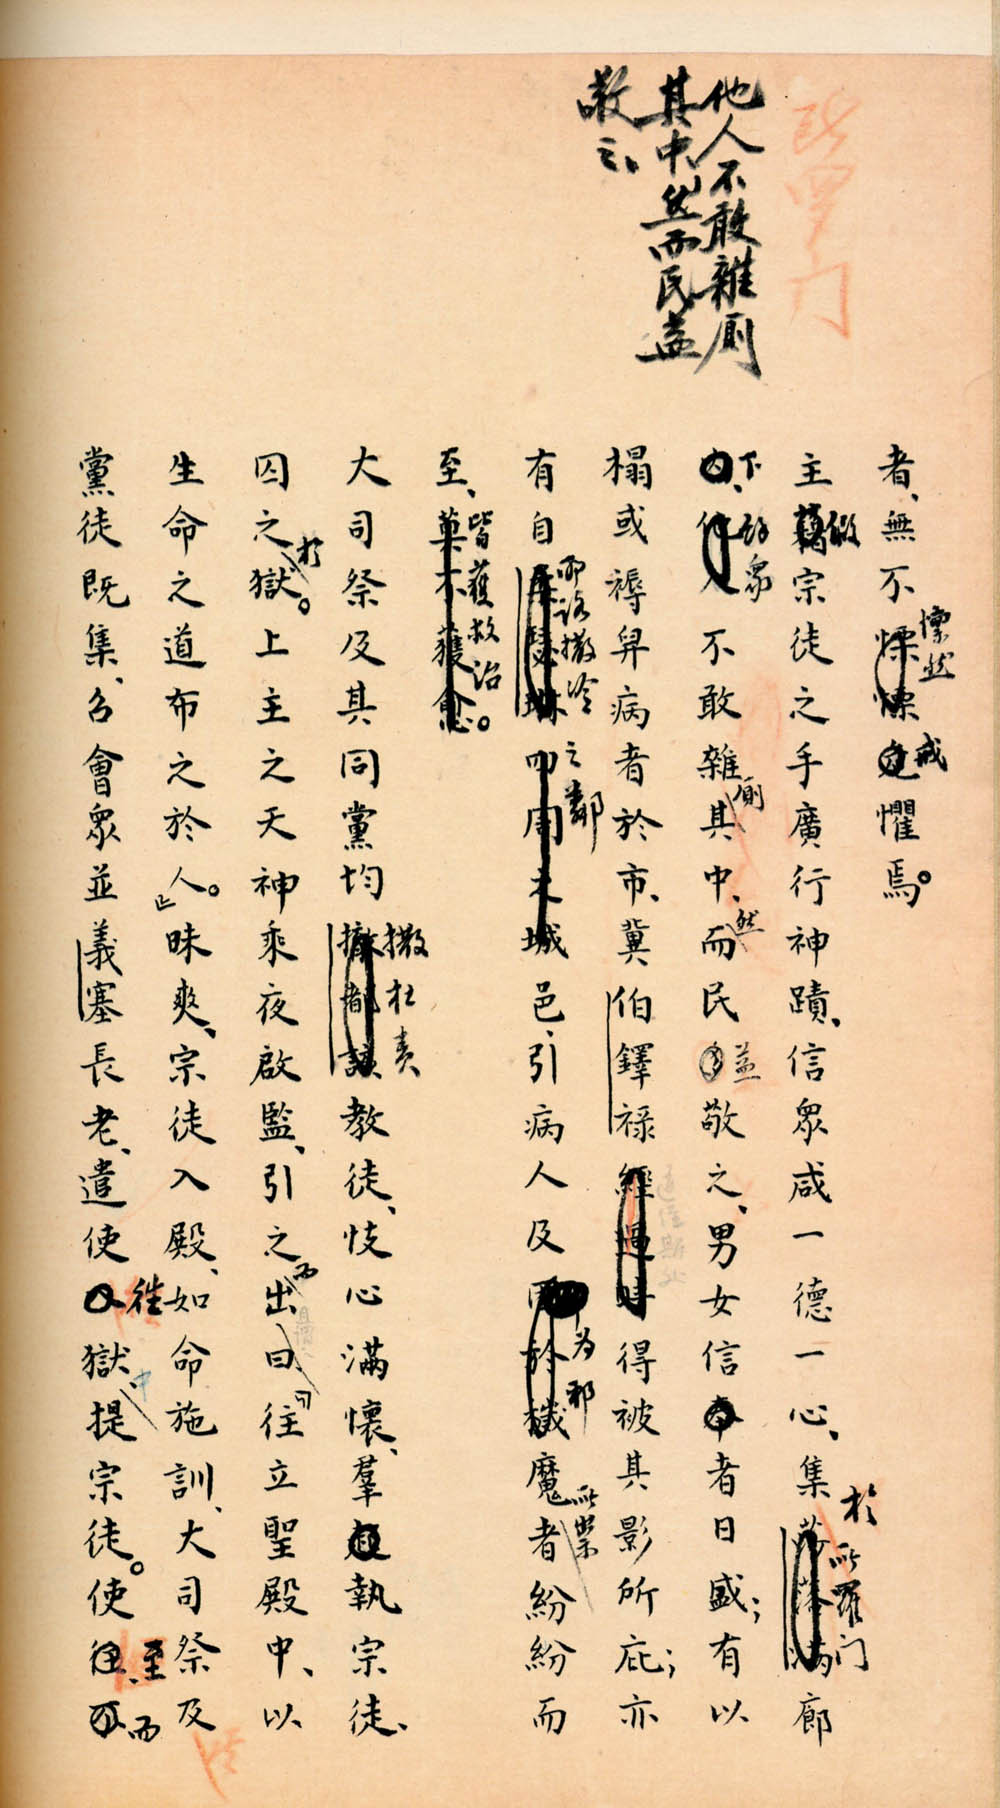 所羅门
他人不敢雜厠
其中然而民益
敬之、
者、無不慄慄危懼焉。
懍然
戒
主藉宗徒之手廣行神蹟、信眾咸一德一心、集
廊
假
於所羅门
不敢雜其中、而民敬之、男女信者日盛；有以
下餘眾
厠
然
益
榻或褥舁病者於市、冀伯鐸祿經過時得被其影所庇；亦
有自叩周之城邑、引病人及於魔者紛紛而
耶路撒冷之鄰
为邪
所祟
至、莫不獲愈。
皆獲救治
大司祭及其同黨均撒都該教徒、忮心滿懷、羣執宗徒、
撒杜責
囚之獄。上主之天神乘夜啟監、引之出、曰、往立聖殿中、以
於
而
生命之道布之於人。昧爽、宗徒入殿、如命施訓、大司祭及
黨徒既集、召會眾並義塞長老、遣使獄提宗徒。使
往
中
至
而